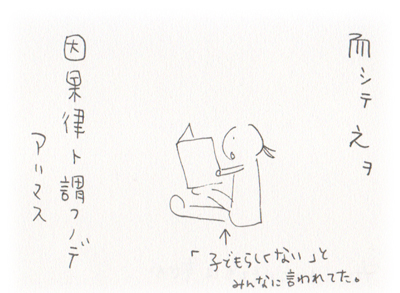 而シテ之ヲ
因果律ト謂フノデ
アリマス
「子どもらしくない」と
みんなに言われてた。